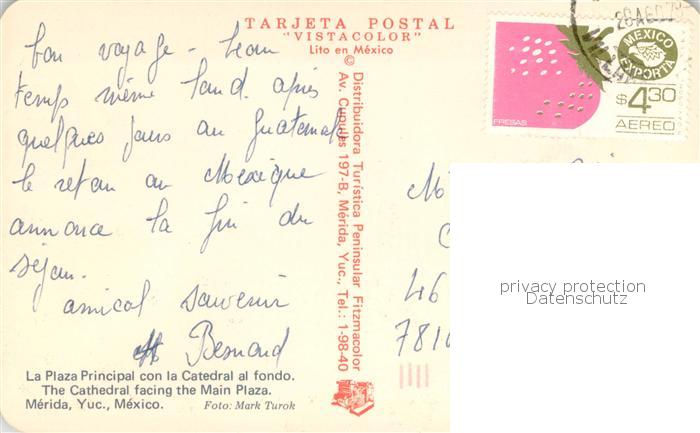 TARJETA POSTAL
"VISTACOLOR"
Lito en México
©
Distribuidora Turística Peninsular Fitzmacolor
Av. Cupules 197-B, Mérida, Yuc., Tel.: 1-98-40
bon voyage - beau
temps même land. après
quelques jours au Guatemala
le retour au Mexique
annonce la fin du
séjour.
amical souvenir
Bernard
La Plaza Principal con la Catedral al fondo.
The Cathedral facing the Main Plaza.
Mérida, Yuc., México. Foto: Mark Turok
MEXICO
EXPORTA
$4.30
AEREO
FRESAS
26 AGO
M
46
781
privacy protection
Datenschutz